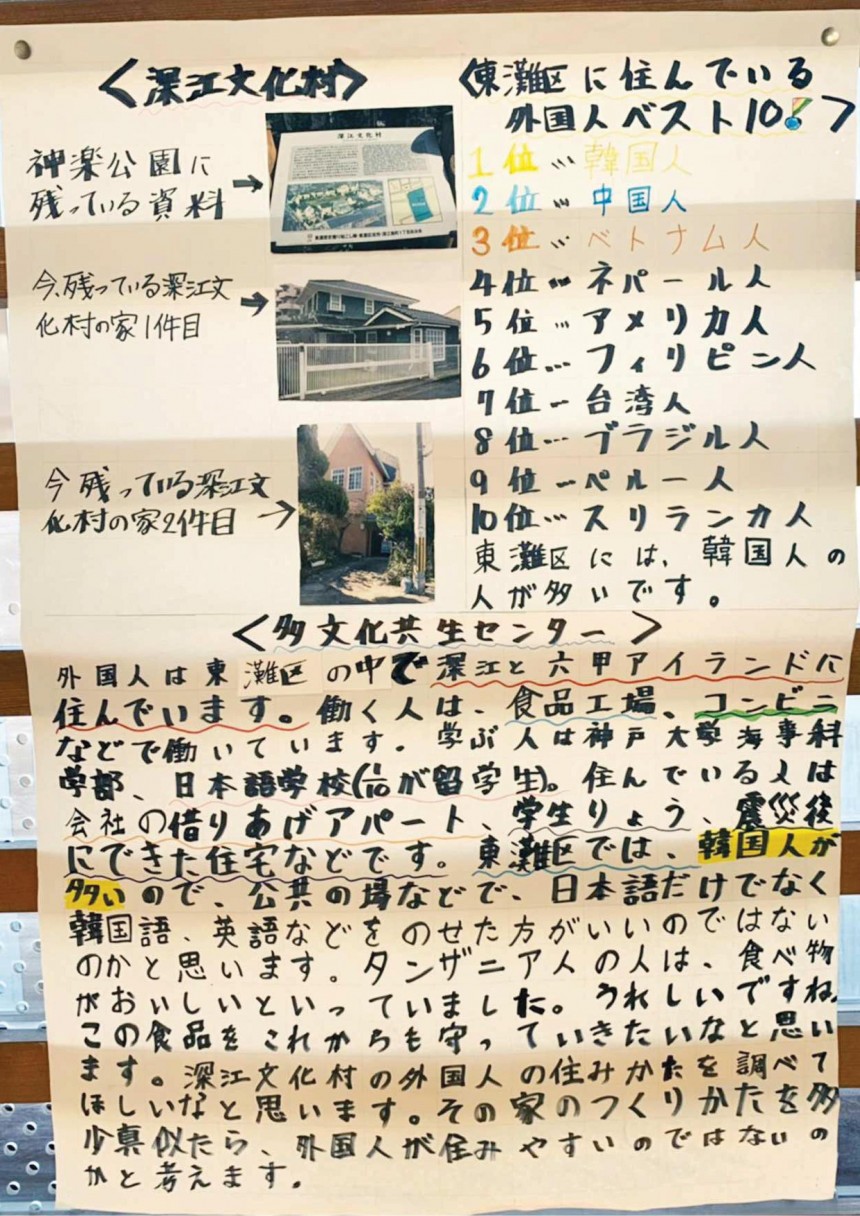 〈深江文化村〉
神楽公園に
残っている資料
深江文化村
今、残っている深江文
化村の家1件目
今残っている深江文
化村の家2件目
〈東灘区に住んでいる
外国人ベスト10!〉
1位…韓国人
2位…中国人
3位…ベトナム人
4位…ネパール人
5位…アメリカ人
6位…フィリピン人
7位…台湾人
8位…ブラジル人
9位…ペルー人
10位…スリランカ人
東灘区には、韓国人の
人が多いです。
〈多文化共生センター〉
外国人は東灘区の中で深江と六甲アイランドに
住んでいます。働く人は、食品工場、コンビニ
などで働いています。学ぶ人は神戸大学海事科
学部、日本語学校(1/10が留学生)。住んでいる人は
会社の借りあげアパート、学生りょう、震災後
にできた住宅などです。東灘区では、韓国人が
多いので、公共の場などで、日本語だけでなく
韓国語、英語などをのせた方がいいのではない
のかと思います。タンザニア人の人は、食べ物
がおいしいといっていました。うれしいですね。
この食品をこれからも守っていきたいなと思い
ます。深江文化村の外国人の住みかたを調べて
ほしいなと思います。その家のつくりかたを多
少真似たら、外国人が住みやすいのではないの
かと考えます。